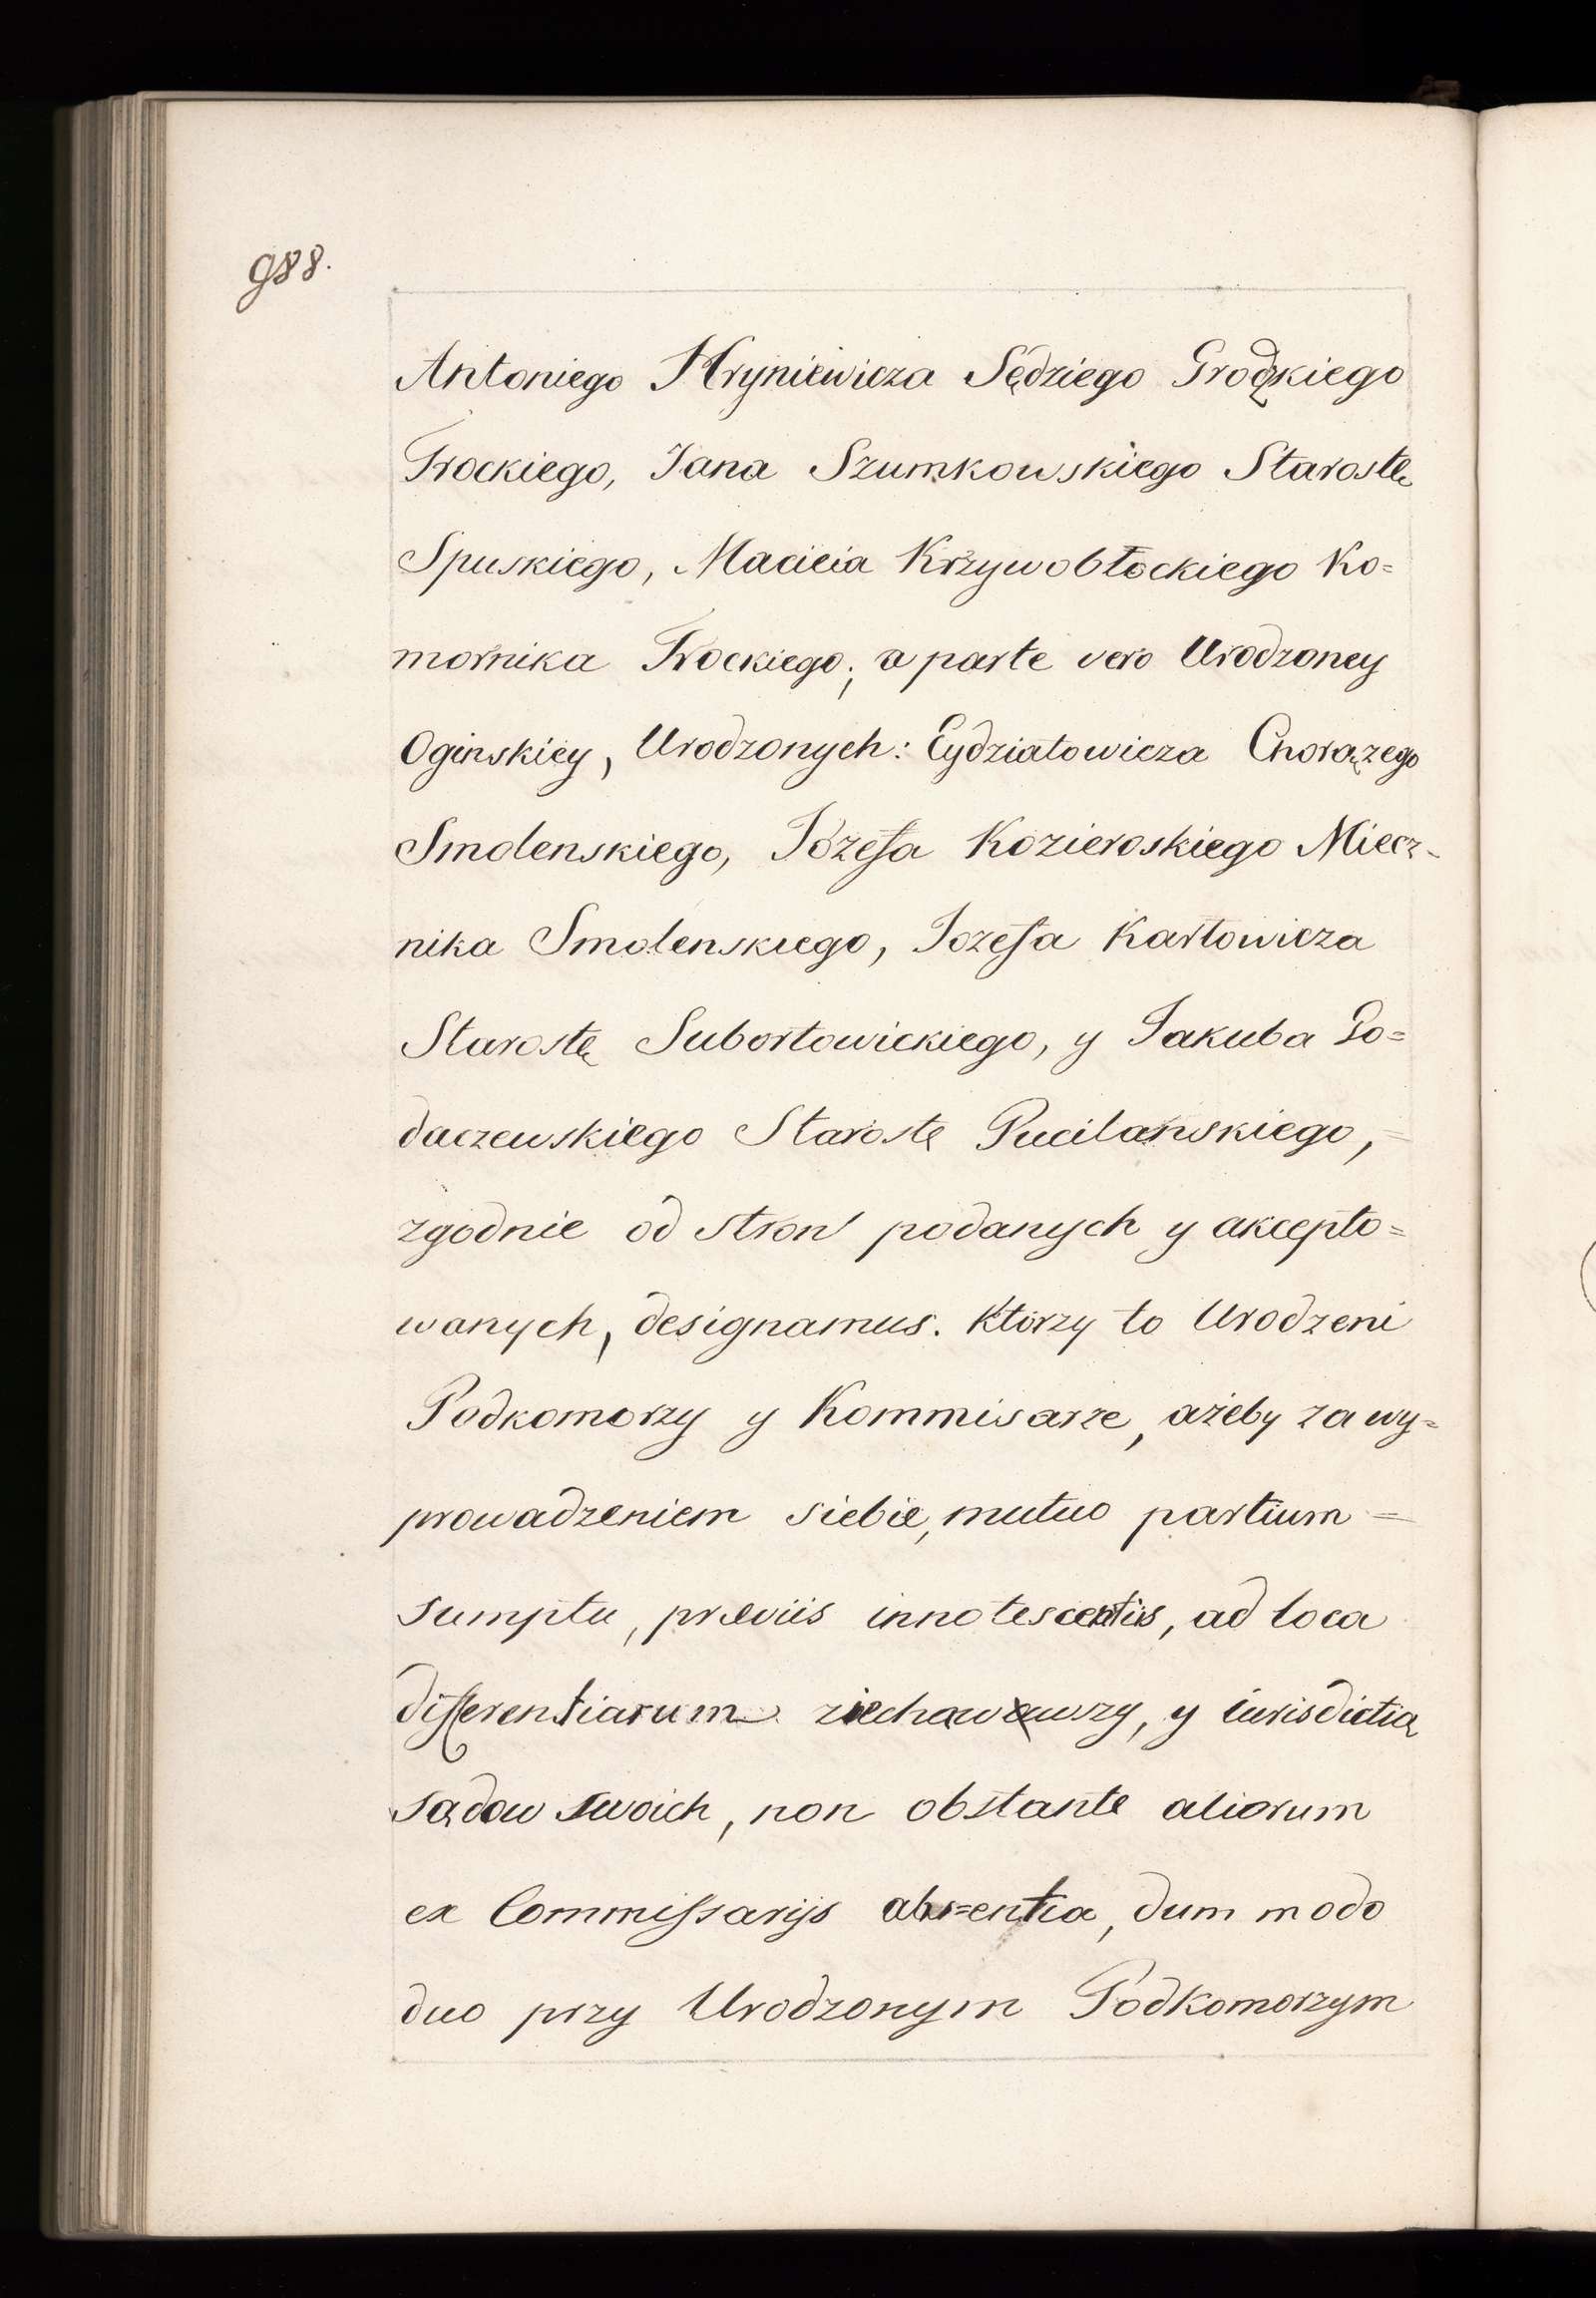 988.
Antoniego Hryniewicza Sędziego Grodzkiego
Trockiego, Jana Szumkowskiego Starostę
Spuskiego, Macieia Krzywobłockiego Ko=
mornika Trockiego; a parte vero Urodzoney
Oginskiey, Urodzonych: Eydziatowicza Chorązego
Smolenskiego, Józefa Kozieroskiego Miecz-
nika Smolenskiego, Jozefa Karłowicza
Starostę Subortowickiego, y Jakuba Go=
daczewskiego Starostę Pucilanskiego, =
zgodnie od stron podanych y akcepto=
wanych, designamus. Którzy to Urodzeni
Podkomorzy y Kommisarze, ażeby za wy=
prowadzeniem siebie, mutuo partium =
sumptu, præviis innotescentiis, ad loca
differentiarum ziechawszy, y iurisdictią
sądow swoich, non obstante aliorum
ex Commissarijs abs=entia, dum modo
duo przy Urodzonym Podkomorzym